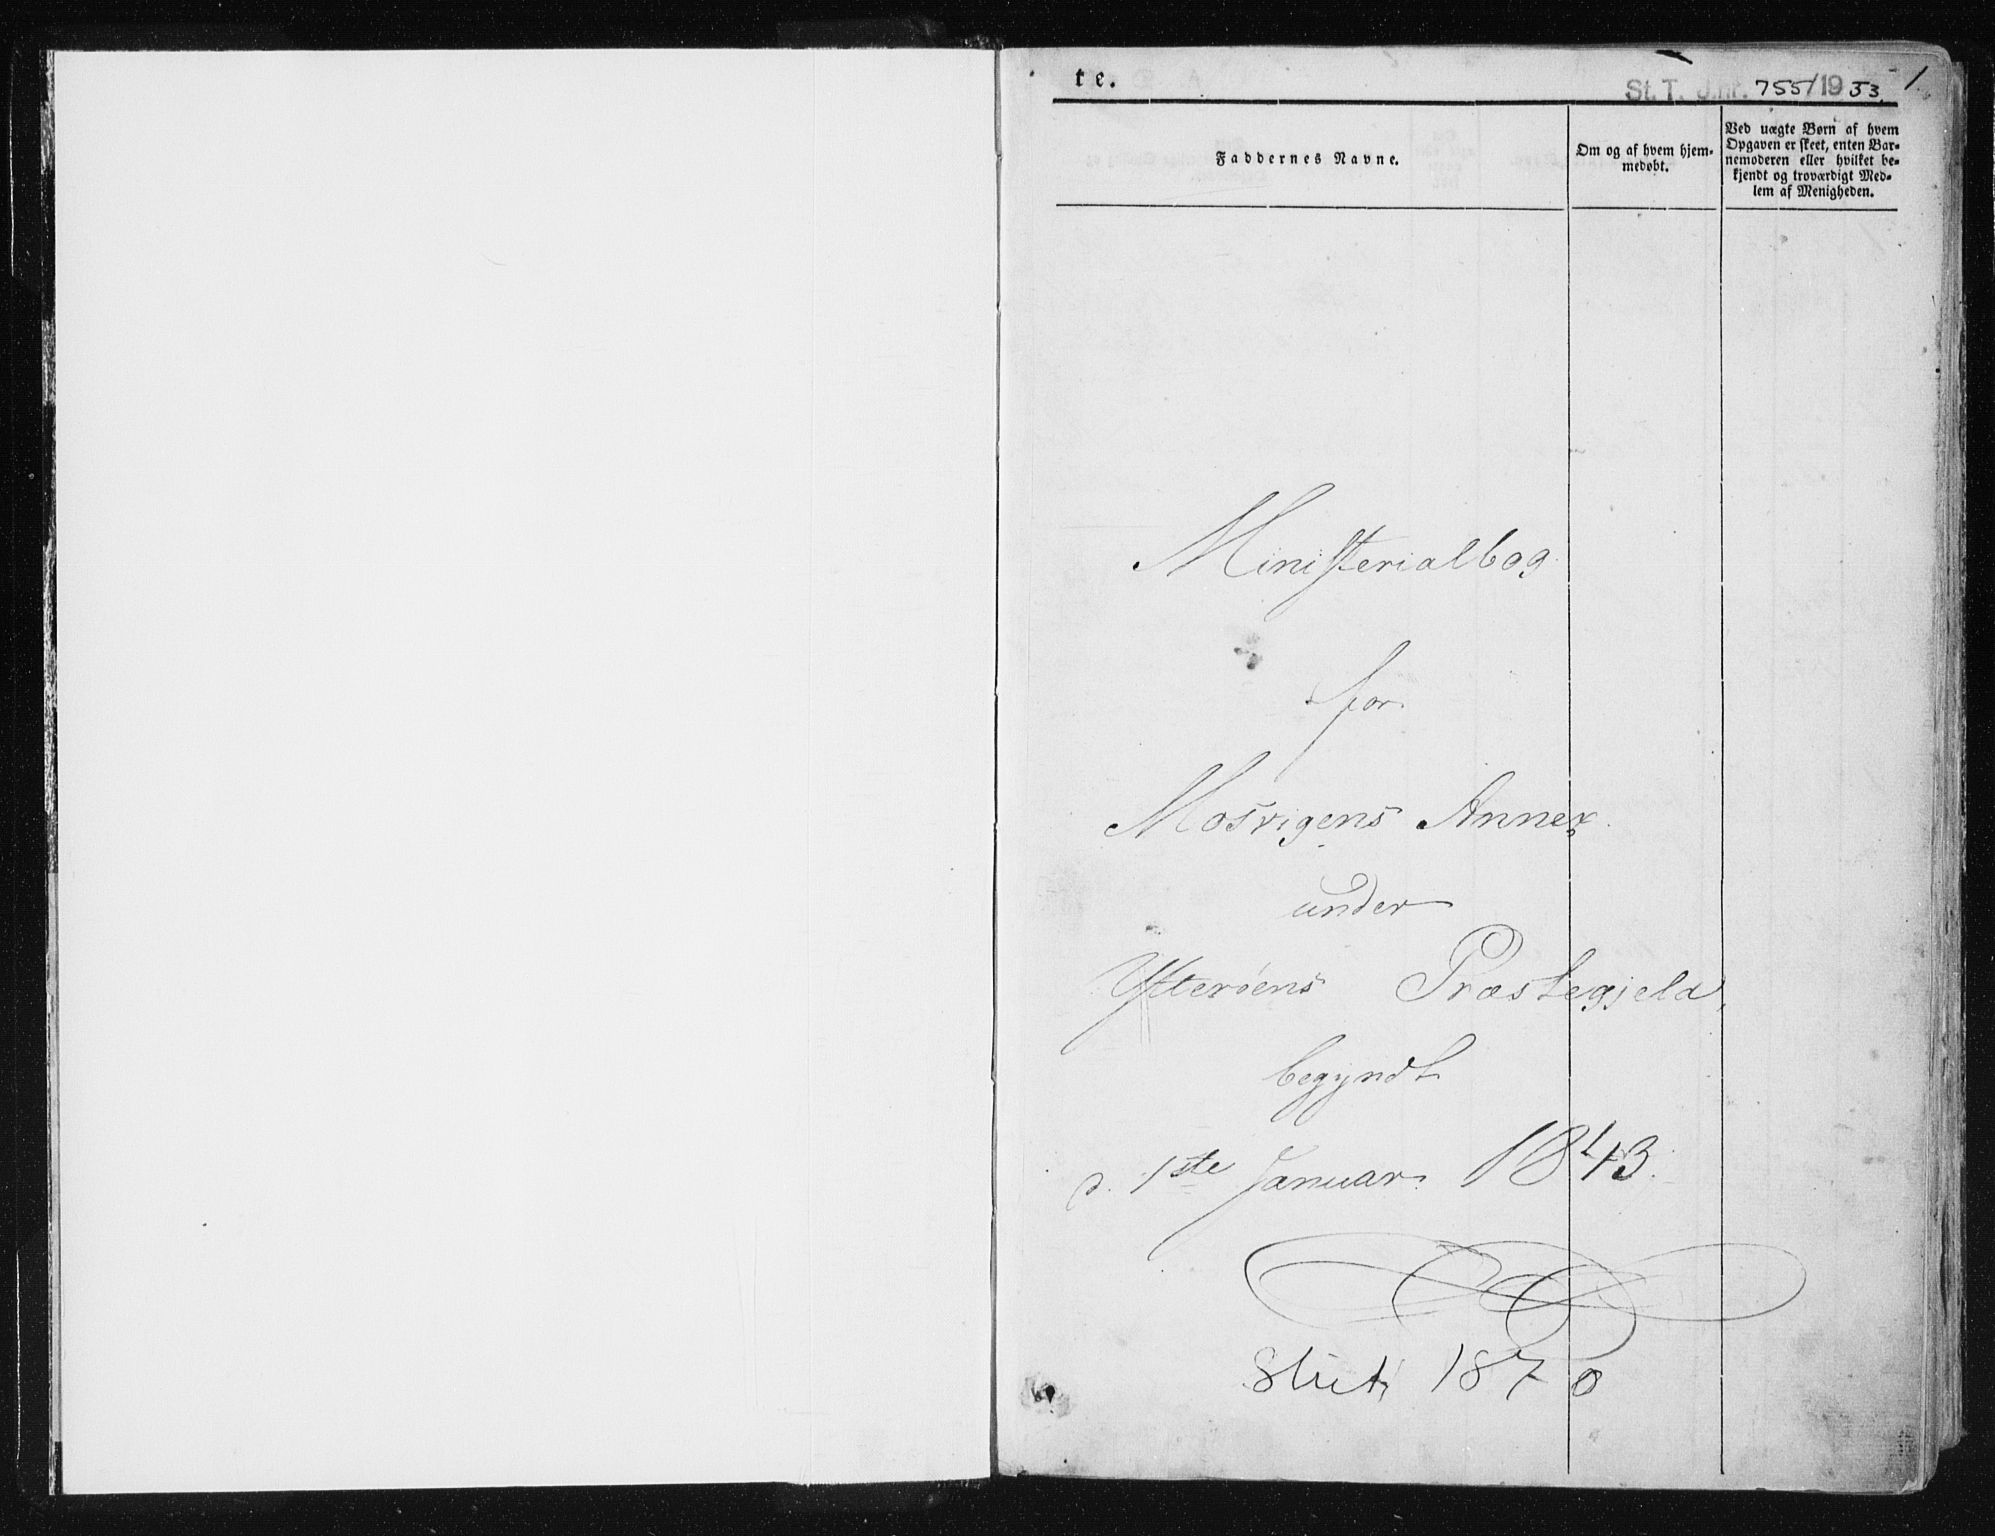 te.
St. T. J.nr. 755/1953
1
Faddernes Navne.
Om og af hvem hjem-
medøbt.
Ved uægte Børn af hvem
Opgaven er skeet, enten Bar-
nemoderen eller hvilket be-
kjendt og troværdigt Med-
lem af Menigheden.
Ministerialbog
for
Mosvigens Annex
under
Ytterøens Præstegjeld
begyndt
d. 1ste Januar 1843.
Slut 1870